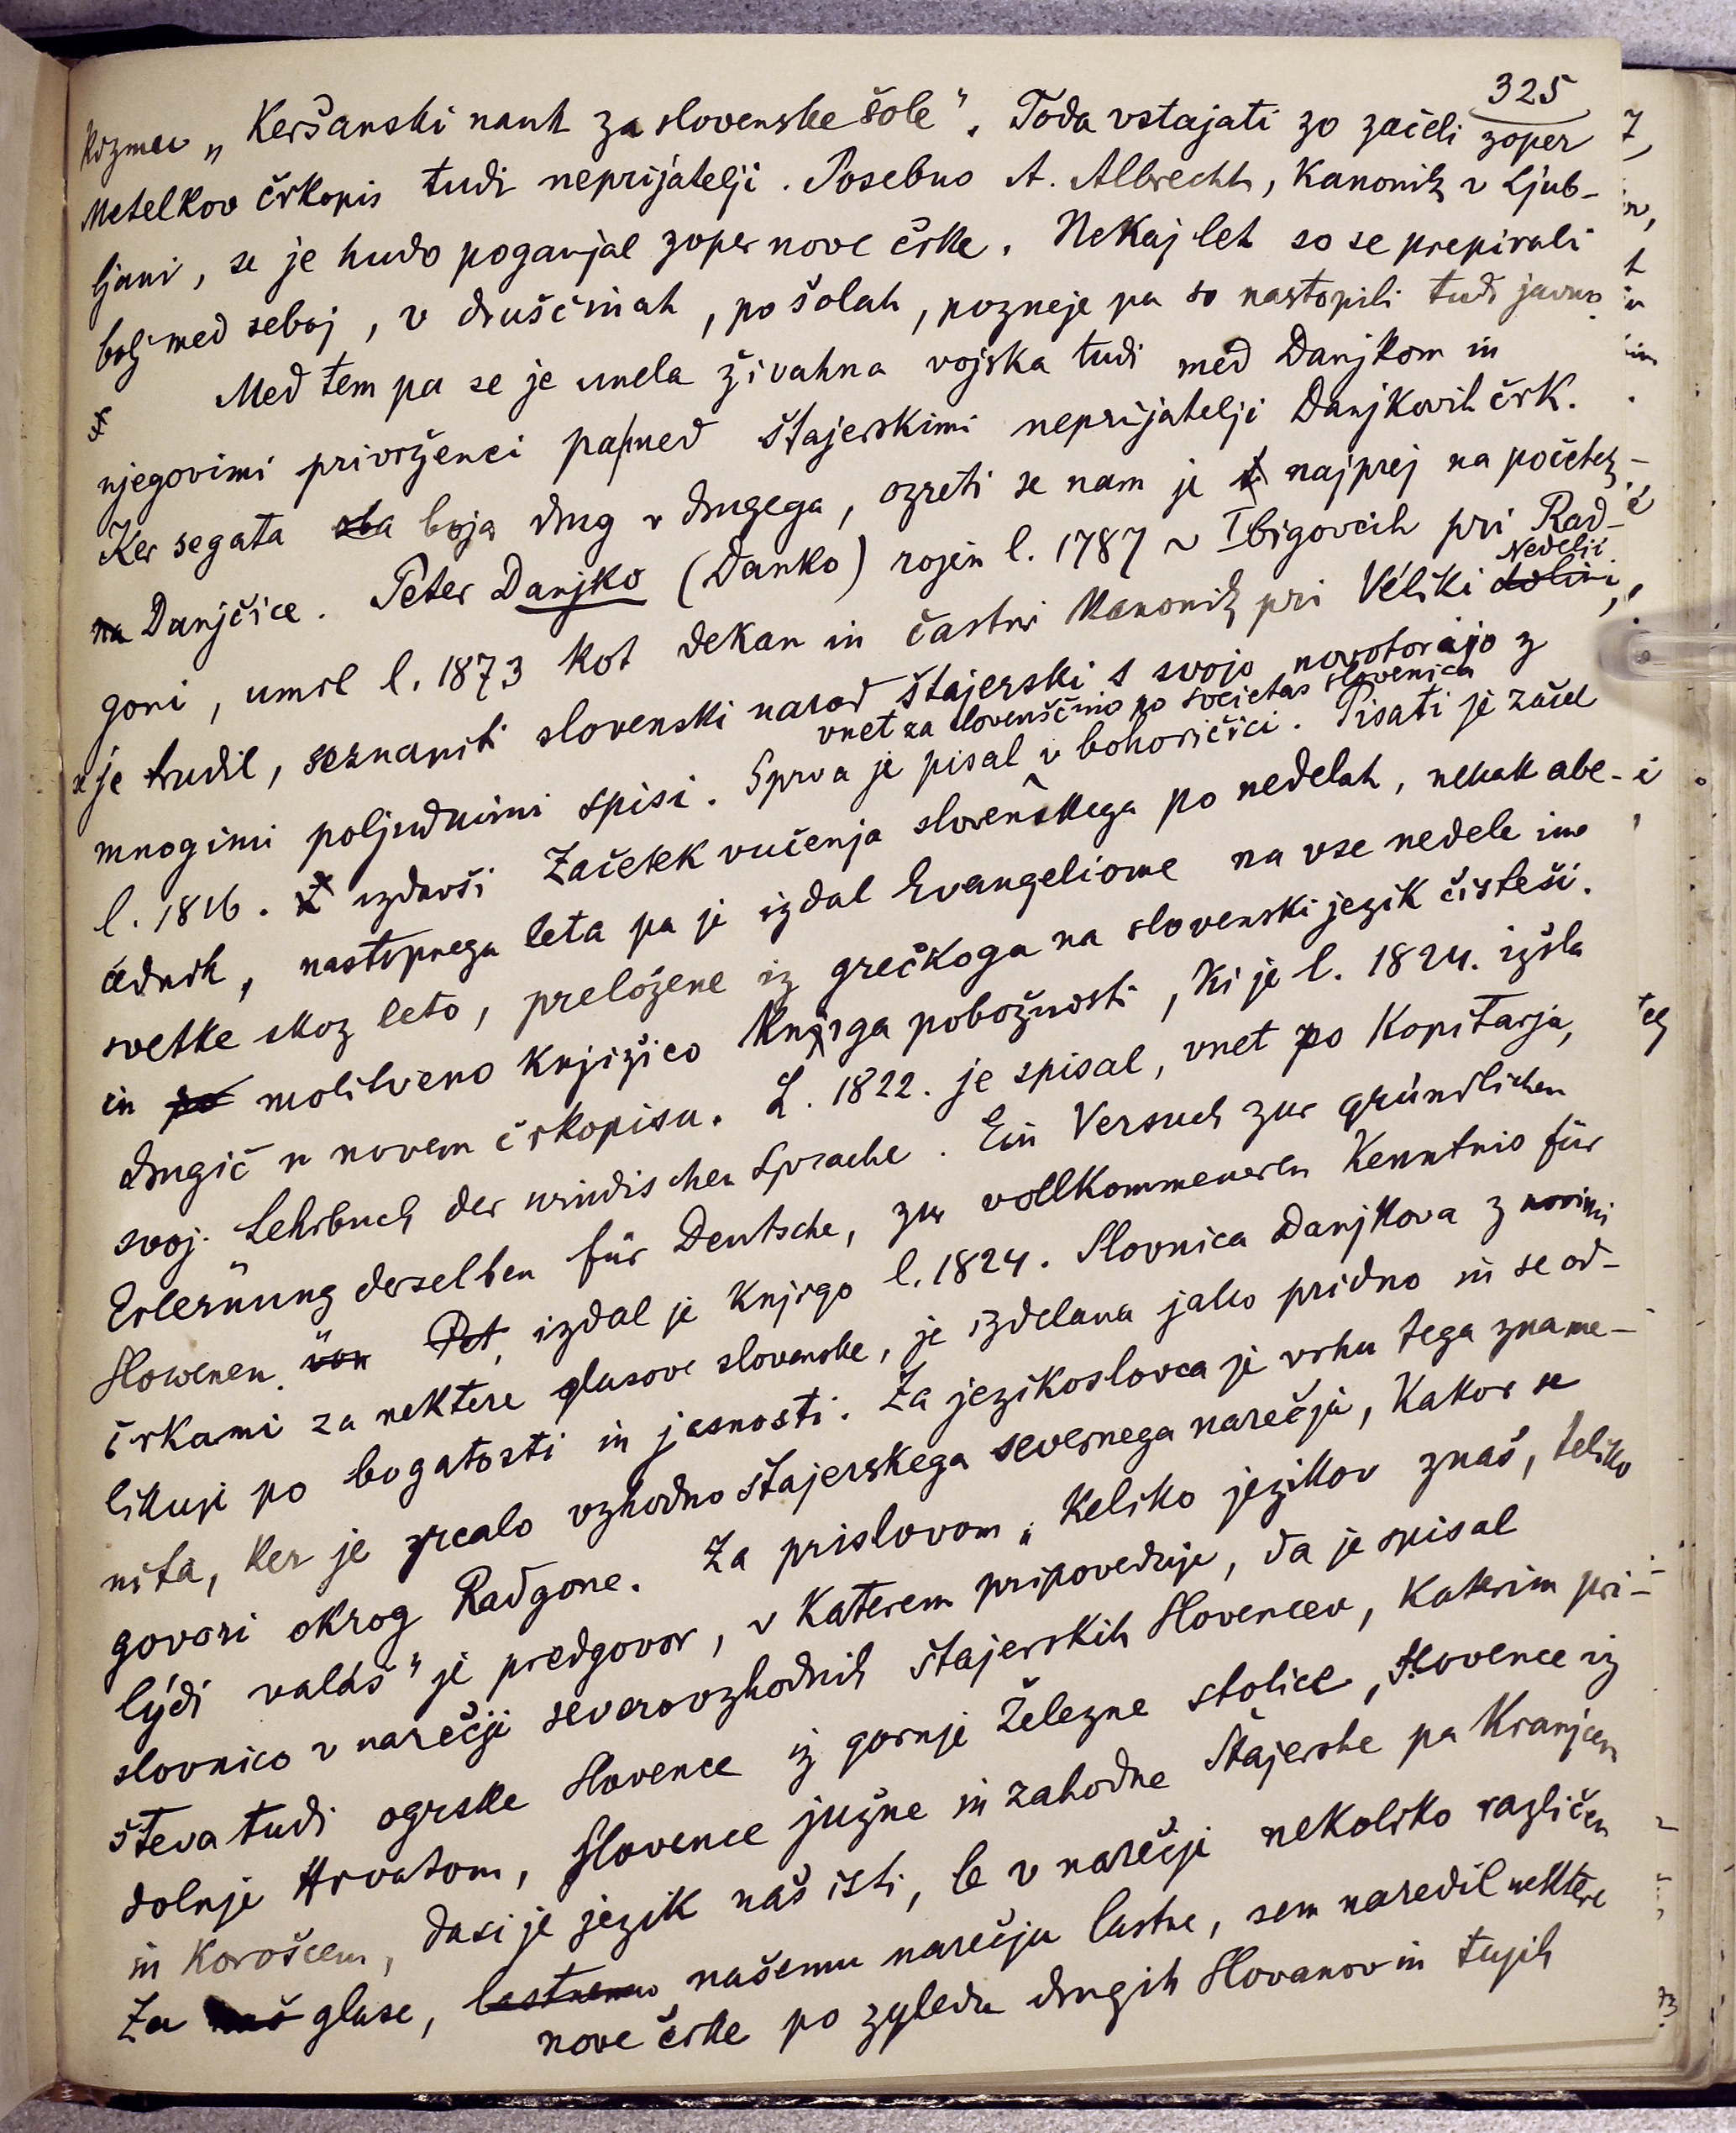 325
Kozmer „Keršanski nauk za slovenske šole". Toda vstajati so začeli zoper
Metelkov črkopis tudi neprijatelji. Posebno A. Albrecht, kanonik v Ljub-
ljani, se je hudo poganjal zoper nove črke. Nekaj let so se prepirali
bolj med seboj, v druščinah, po šolah, pozneje pa so nastopili tudi javno.
Med tem pa se je unela živahna vojska tudi med Danjkom in
njegovimi privrženci pa med štajerskimi neprijatelji Danjkovih črk.
Ker segata oba boja drug v drugega, ozreti se nam je najprej na početek
na Danjčice. Peter Danjko (Danko) rojen l. 1787 v Ibigovcih pri Rad-
Nedelji
goni, umrl l. 1873 kot dekan in častni kanonik pri Véliki dolini,
se je trudil, seznaniti slovenski narod štajerski s svojo novotorijo z
vnet za slovenščino po societas slovenica
mnogimi poljudnimi spisi. Sprva je pisal v bohoričici. Pisati je začel
l. 1816. izdavši Začetek vučenja slovenskega po nedelah, nekak abe-
cednik, nastopnega leta pa je izdal Evangeliome na vse nedele ino
svetke skoz leto, preložene iz grečkoga na slovenski jezik čisteši.
in po molitveno knjižico Knjiga pobožnosti, ki je l. 1824. izšla
drugič v novem črkopisu. L. 1822. je spisal, vnet po Kopitarja,
svoj. Lehrbuch der windischen Sprache. Ein Versuch zur gründlichen
Erlernung derselben für Deutsche, zur vollkommeneren Kenntnis für
Slowenen. von Pet, izdal je knjigo l. 1824. Slovnica Danjkova z novimi
črkami za nektere glasove slovenske, je izdelana jako pridno in se od-
likuje po bogatosti in jasnosti. Za jezikoslovca je vrhu tega zname-
nita, ker je zrcalo vzhodno štajerskega severnega narečja, kakor se
govori okrog Radgone. Za prislovom „Keliko jezikov znaš, teliko
lydi valáš" je predgovor, v katerem pripoveduje, da je spisal
slovnico v narečji severovzhodnih štajerskih Slovencev, katerim pri-
števa tudi ogrske Slovence iz gornje Železne stolice, Slovence iz
dolnje Hrvatom, Slovence južne in zahodne Štajerske pa Kranjcem
in Korošcem, dasi je jezik naš isti, le v narečji nekoliko različen
Za naš glase, lastnemu našemu narečju lastne, sem naredil nektere
nove črke po zgledu drugih Slovanov in tujih